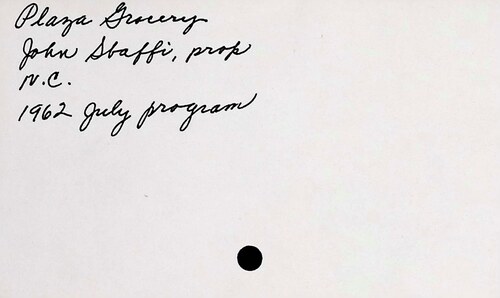 Plaza Grocery
John Sbaffi, prop
N.C.
1962 July program